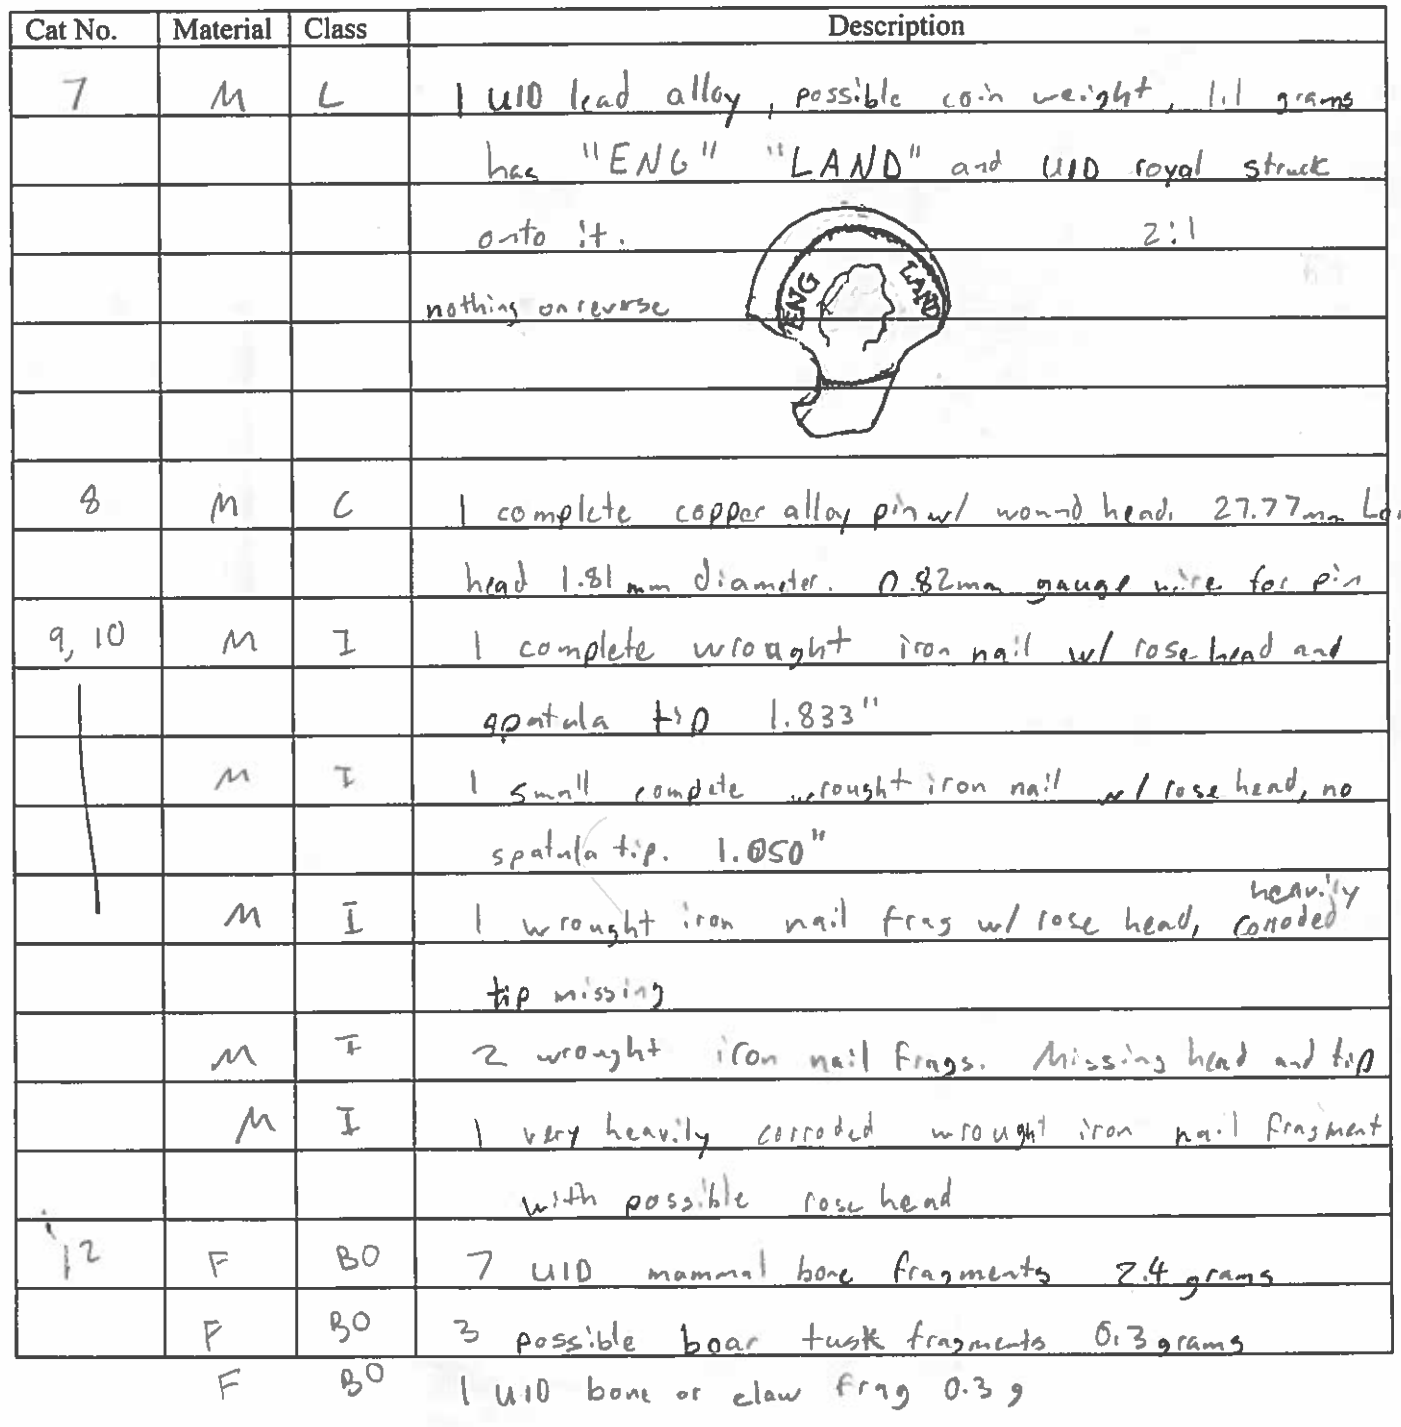 Cat No. Material Class Description
7 M L 1 UID lead alloy, possible coin weight, 1.1 grams
has "ENG" "LAND" and UID royal struck
onto it. 2:1
ENG LAND
nothing on reverse
8 M C 1 complete copper alloy pin w/ wound head. 27.77mm Lo.
head 1.81 mm diameter. 0.82mm gauge wire for pin
9, 10 M I 1 complete wrought iron nail w/ rose head and
spatula tip 1.833"
M I 1 small compete wrought iron nail w/ rose head, no
spatula tip. 1.050"
heavily
M I 1 wrought iron nail frag w/ rose head, corroded
tip missing
M I 2 wrought iron nail frags. Missing head and tip
M I 1 very heavily corroded wrought iron nail fragment
with possible rose head
12 F BO 7 UID mammal bone fragments 2.4 grams
F BO 3 possible boar tusk fragments 0.3 grams
F BO 1 UID bone or claw frag 0.3 g